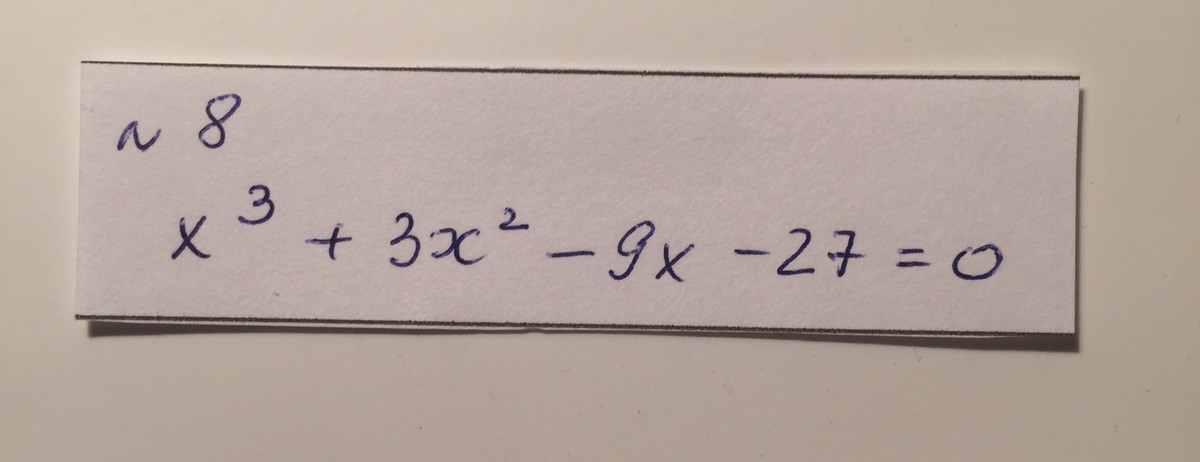 N 8
x³ + 3x² - 9x - 27 = 0